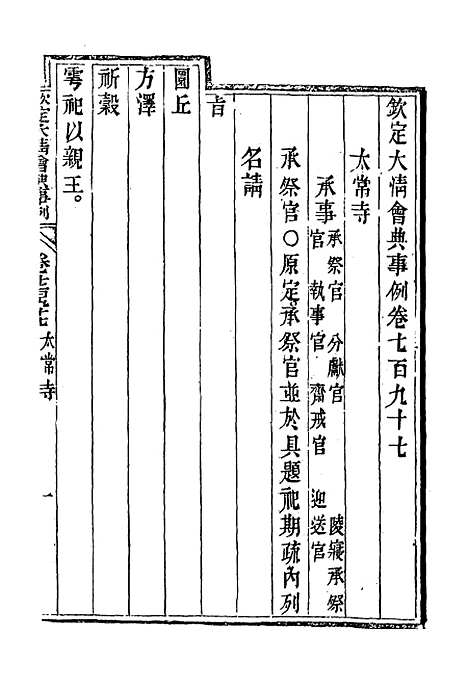 欽定大清會典事例卷七百九十七
太常寺
承事 承祭官 分獻官 陵寢承祭
官 執事官 齋戒官 迎送官
承祭官〇原定承祭官並於具題祀期疏內列
名請
旨
圜丘
方澤
祈穀
雩祀以親王。
欽定大清會典事例 卷七百九十七 太常寺 一